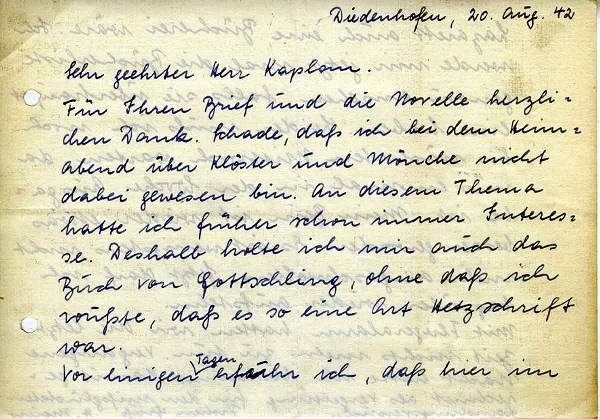 Diedenhofen, 20. Aug. 42
Sehr geehrter Herr Kaplan.
Für Ihren Brief und die Novelle herzli-
chen Dank. Schade, daß ich bei dem Heim-
abend über Klöster und Mönche nicht
dabei gewesen bin. An diesem Thema
hatte ich früher schon immer Interes-
se. Deshalb holte ich mir auch das
Buch von Gottschling, ohne daß ich
wußte, daß es so eine Art Hetzschrift
war.
Vor einigen Tagen erfuhr ich, daß hier im